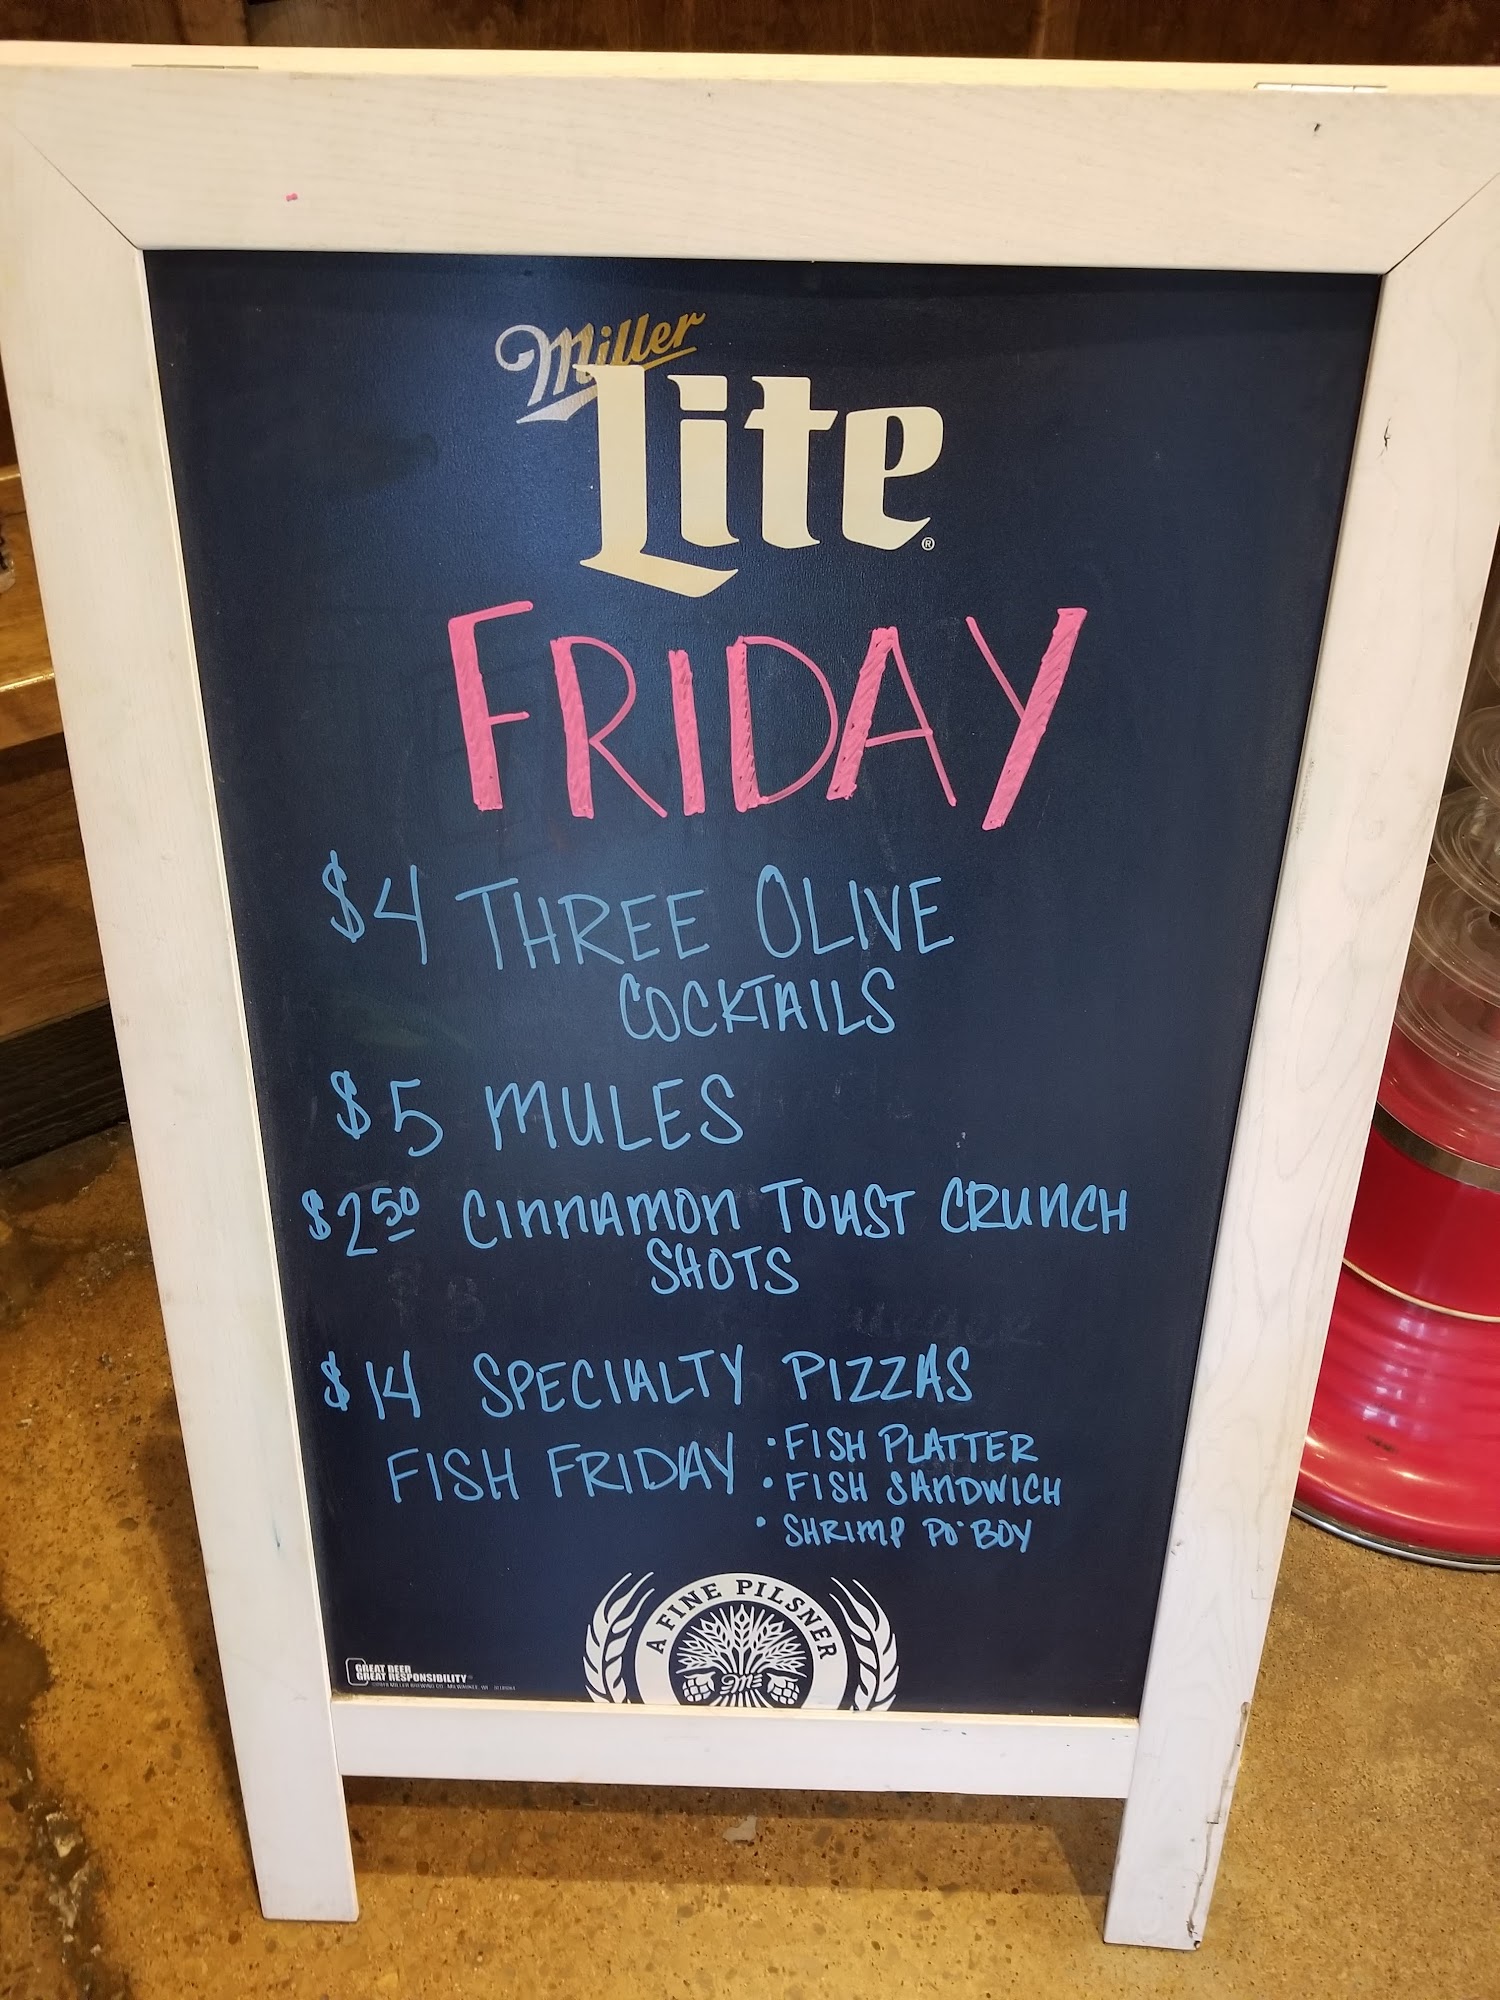 Miller
Lite®
FRIDAY
$4 THREE OLIVE
COCKTAILS
$5 MULES
$2.50 CINNAMON TOAST CRUNCH
SHOTS
$14 SPECIALTY PIZZAS
FISH FRIDAY • FISH PLATTER
• FISH SANDWICH
• SHRIMP PO'BOY
A FINE PILSNER
GREAT BEER
GREAT RESPONSIBILITY